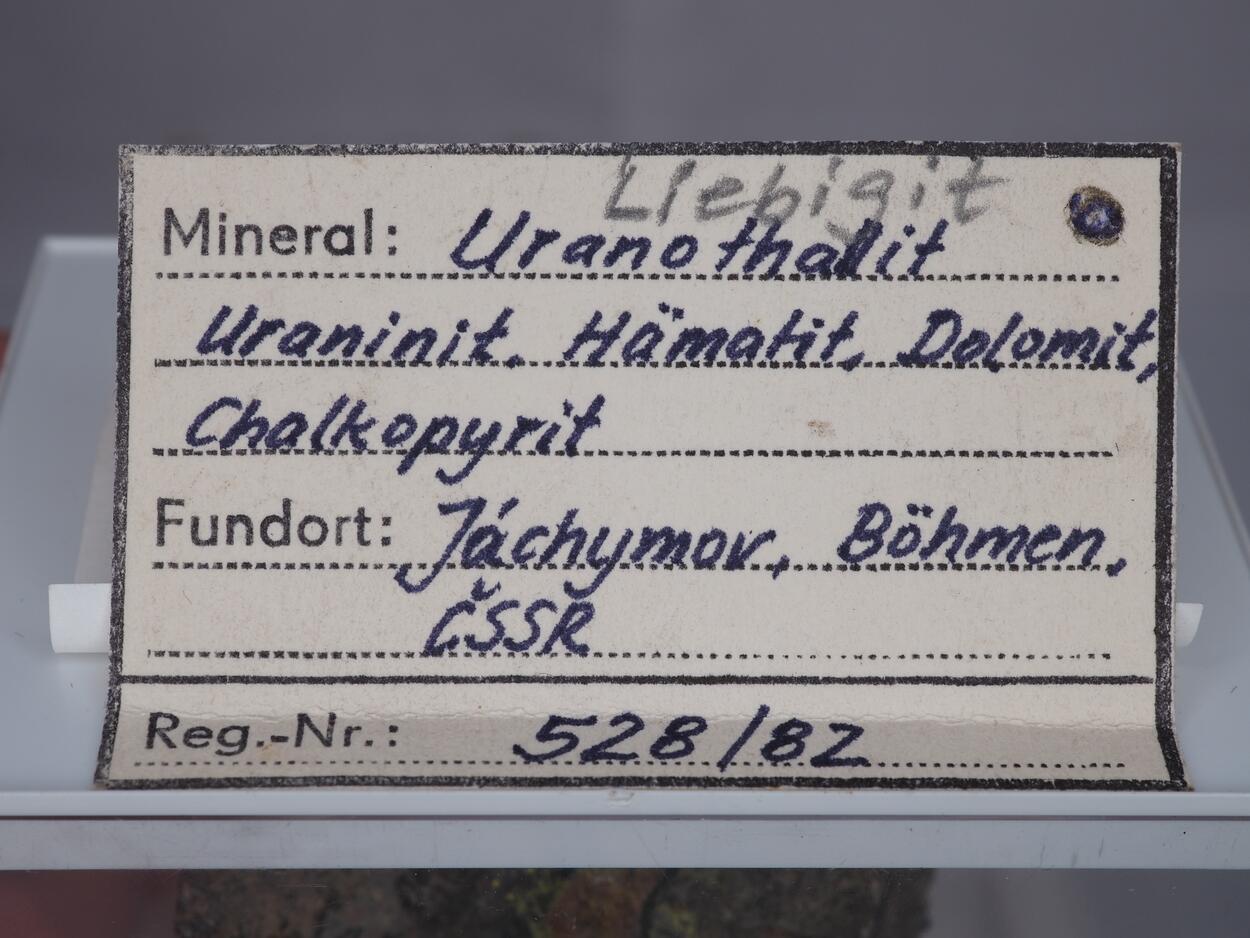 Liebigit
Mineral: Uranothallit
Uraninit, Hämatit, Dolomit,
Chalkopyrit
Fundort: Jáchymov, Böhmen,
ČSSR
Reg.-Nr.: 528/82